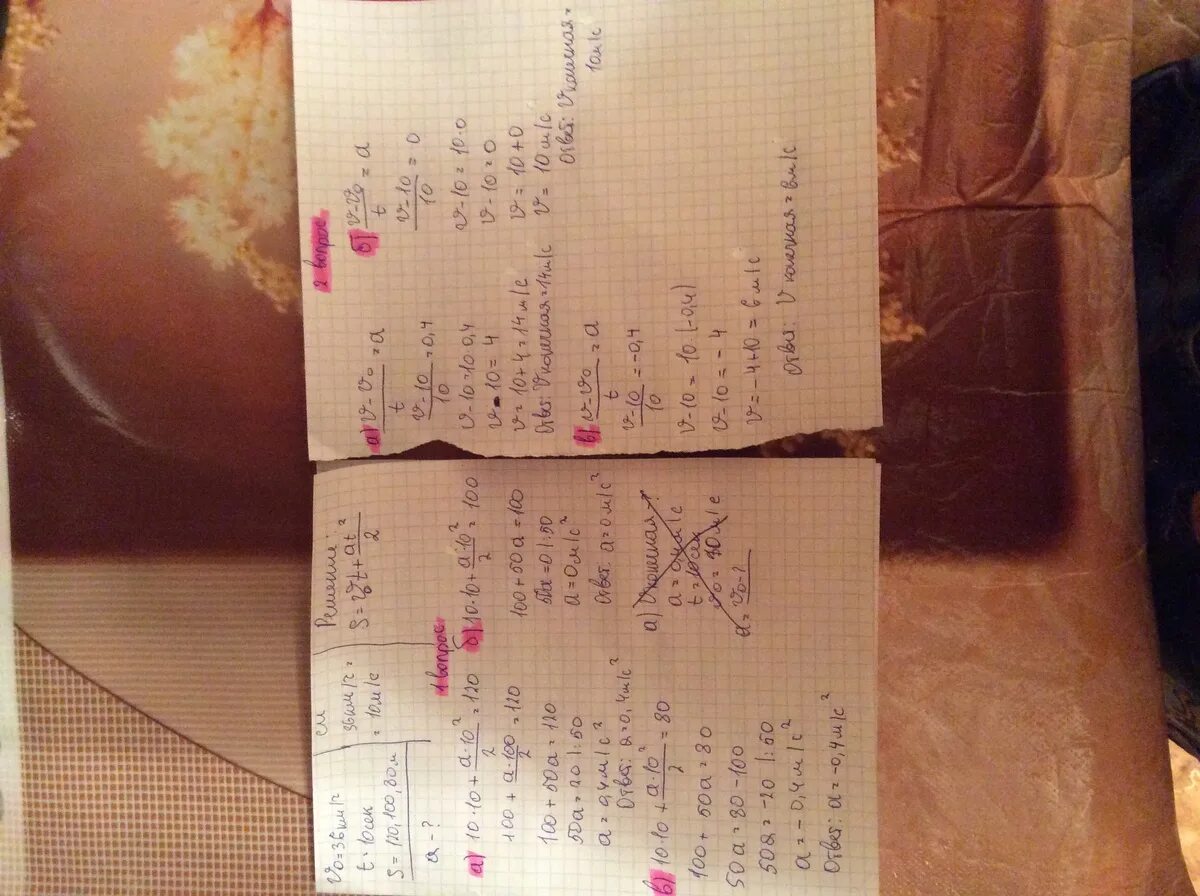 V₀=36км/г
t=10сек
S=120,100,80м
a-?
СИ
36км/г=
=10м/с
Решение:
S=V₀t+at²/2
1 вопрос
а) 10·10+a·10²/2=120
100+a·100/2=120
100+50a=120
50a=20 |:50
a=0,4м/с²
Ответ: a=0,4м/с²
б) 10·10+a·10²/2=100
100+50a=100
50a=0 |:50
a=0м/с²
Ответ: a=0м/с²
в) 10·10+a·10²/2=80
100+50a=80
50a=80-100
50a=-20 |:50
a=-0,4м/с²
Ответ: a=-0,4м/с²
а) Vконечная-?
t=10сек
a=V₀-?
2 вопрос
а) v-v₀/t=a
v-10/10=0,4
v-10=10·0,4
v-10=4
v=10+4=14м/с
Ответ: Vконечная=14м/с
б) v-v₀/t=a
v-10/10=0
v-10=10·0
v-10=0
v=10+0
v=10м/с
Ответ: Vконечная=
10м/с
в) v-v₀/t=a
v-10/10=-0,4
v-10=10·(-0,4)
v-10=-4
v=-4+10=6м/с
Ответ: Vконечная=6м/с